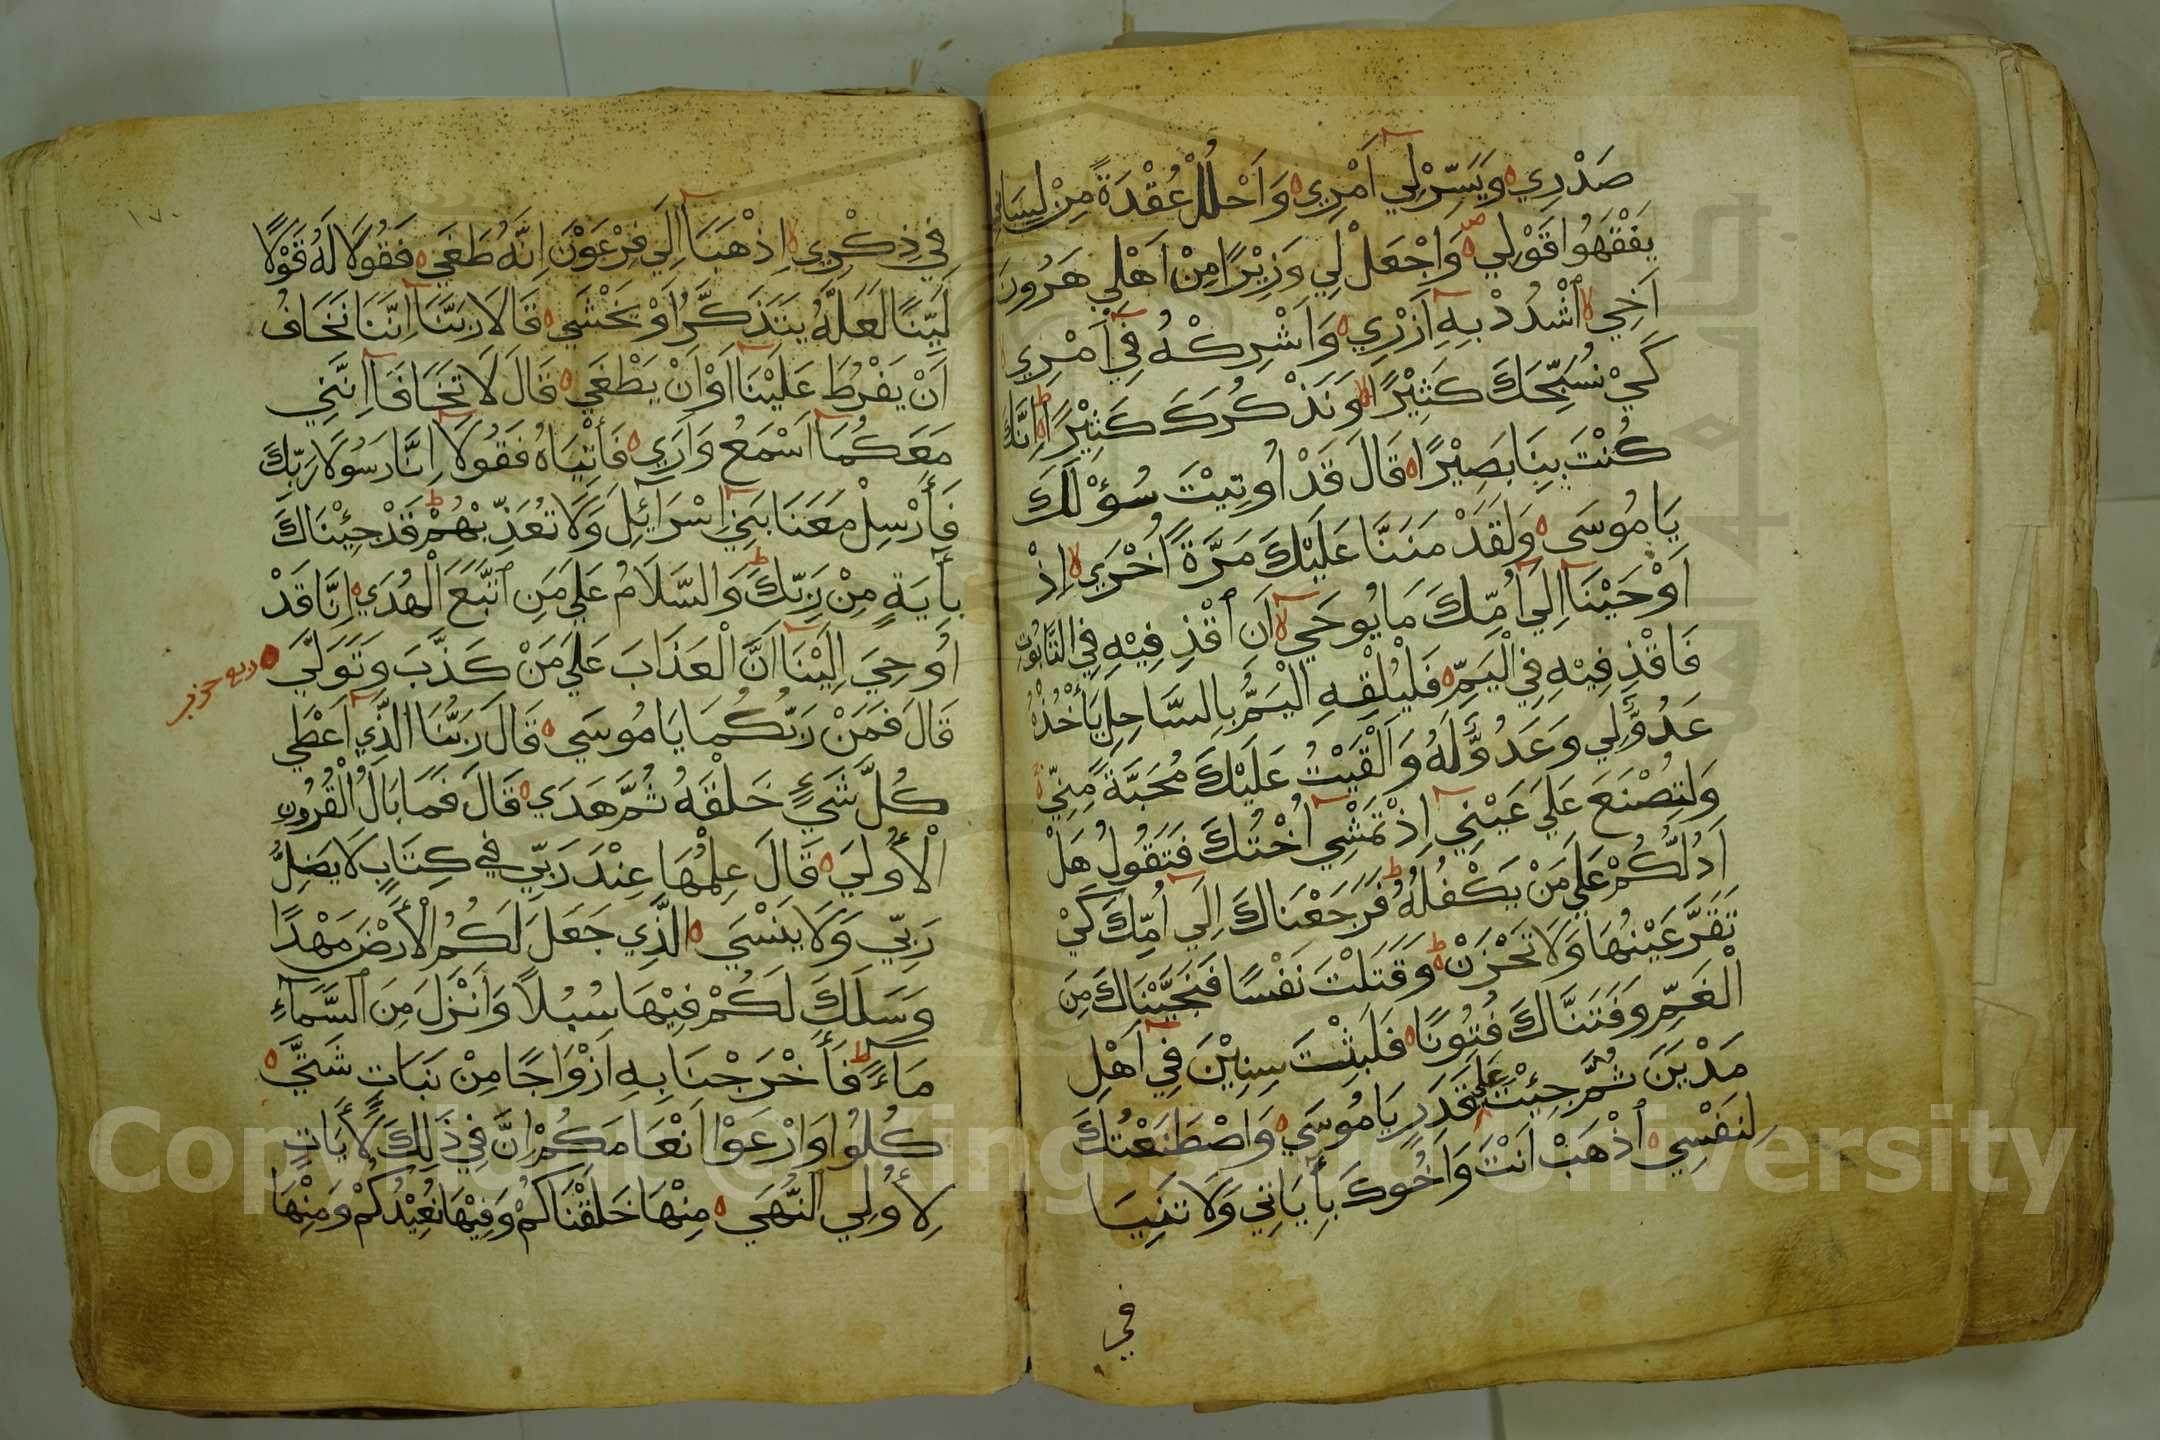 صَدْرِي وَيَسِّرْ لِي أَمْرِي وَاحْلُلْ عُقْدَةً مِنْ لِسَانِي
يَفْقَهُوا قَوْلِي وَاجْعَلْ لِي وَزِيْرًا مِنْ أَهْلِي هَرُونَ
أَخِي ٱشْدُدْ بِهِ أَزْرِي وَأَشْرِكْهُ فِي أَمْرِي
كَيْ نُسَبِّحَكَ كَثِيْرًا وَنَذْكُرَكَ كَثِيْرًا إِنَّكَ
كُنْتَ بِنَا بَصِيْرًا قَالَ قَدْ أُوتِيْتَ سُؤْلَكَ
يَامُوسَى وَلَقَدْ مَنَنَّا عَلَيْكَ مَرَّةً أُخْرَي إِذْ
أَوْحَيْنَا إِلَي أُمِّكَ مَا يُوحَي أَنِ ٱقْذِفِيْهِ فِي التَّابُوتِ
فَاقْذِفِيْهِ فِي الْيَمِّ فَلْيُلْقِهِ الْيَمُّ بِالسَّاحِلِ يَأْخُذْهُ
عَدُوٌّ لِي وَعَدُوٌّ لَهُ وَأَلْقَيْتُ عَلَيْكَ مَحَبَّةً مِنِّي
وَلِتُصْنَعَ عَلَي عَيْنِي إِذْ تَمْشِي أُخْتُكَ فَتَقُولُ هَلْ
أَدُلُّكُمْ عَلَي مَنْ يَكْفُلُهُ فَرَجَعْنَاكَ إِلَي أُمِّكَ كَيْ
تَقَرَّ عَيْنُهَا وَلَا تَحْزَنْ وَقَتَلْتَ نَفْسًا فَنَجَّيْنَاكَ مِنَ
الْغَمِّ وَفَتَنَّاكَ فُتُونًا فَلَبِثْتَ سِنِيْنَ فِي أَهْلِ
مَدْيَنَ ثُمَّ جِئْتَ عَلَي قَدَرٍ يَامُوسَي وَاصْطَنَعْتُكَ
لِنَفْسِي ٱذْهَبْ أَنْتَ وَأَخُوكَ بِأَيَاتِي وَلَا تَنِيَا
في
١٧٠
فِي ذِكْرِي إِذْهَبَا إِلَي فِرْعَوْنَ إِنَّهُ طَغَي فَقُولَا لَهُ قَوْلًا
لَيِّنًا لَعَلَّهُ يَتَذَكَّرُ أَوْ يَخْشَي قَالَا رَبَّنَا إِنَّنَا نَخَافُ
أَنْ يَفْرُطَ عَلَيْنَا أَوْ أَنْ يَطْغَي قَالَ لَا تَخَافَا إِنَّنِي
مَعَكُمَا أَسْمَعُ وَأَرَي فَأْتِيَاهُ فَقُولَا إِنَّا رَسُولَا رَبِّكَ
فَأَرْسِلْ مَعَنَا بَنِي إِسْرَائِلَ وَلَا تُعَذِّبْهُمْ قَدْ جِئْنَاكَ
بِأَيَةٍ مِنْ رَبِّكَ وَالسَّلَامُ عَلَي مَنِ ٱتَّبَعَ الْهُدَي إِنَّا قَدْ
أُوحِيَ إِلَيْنَا أَنَّ الْعَذَابَ عَلَي مَنْ كَذَّبَ وَتَوَلَّي
ربع حزب
قَالَ فَمَنْ رَبُّكُمَا يَامُوسَي قَالَ رَبُّنَا الَّذِي أَعْطَي
كُلَّ شَيْءٍ خَلْقَهُ ثُمَّ هَدَي قَالَ فَمَا بَالُ الْقُرُونِ
الْأُولَي قَالَ عِلْمُهَا عِنْدَ رَبِّي فِي كِتَابٍ لَا يَضِلُّ
رَبِّي وَلَا يَنْسَي الَّذِي جَعَلَ لَكُمُ الْأَرْضَ مَهْدًا
وَسَلَكَ لَكُمْ فِيْهَا سُبُلًا وَأَنْزَلَ مِنَ ٱلسَّمَآءِ
مَآءً فَأَخْرَجْنَا بِهِ أَزْوَاجًا مِنْ نَبَاتٍ شَتَّي
كُلُوا وَارْعَوْا أَنْعَامَكُمْ إِنَّ فِي ذَلِكَ لَأَيَاتٍ
لِأُولِي النُّهَي مِنْهَا خَلَقْنَاكُمْ وَفِيْهَا نُعِيْدُكُمْ وَمِنْهَا
Copyright © King Saud University